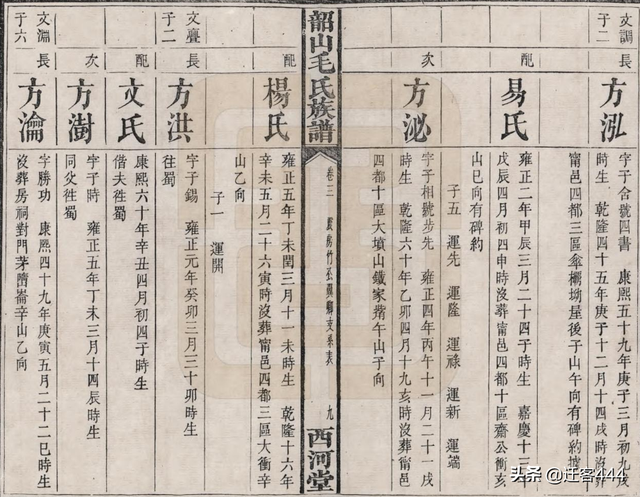 文調
于二
長
方泓
字子含號四書 康熙五十九年庚子三月初九戌
時生 乾隆四十五年庚子十二月十四戌時沒葬
甯邑四都三區傘欛坳屋後子山午向有碑約據
配
易氏
雍正二年甲辰三月二十四子時生 嘉慶十三
戊辰四月初四申時沒葬甯邑四都十區齋公衝亥
山巳向有碑約
子五 運先 運隆 運祿 運新 運端
次
方泌
字子相號步先 雍正四年丙午十一月二十一戌
時生 乾隆六十年乙卯四月十九亥時沒葬甯邑
四都十區大墳山鐵家塝午山子向
韶山毛氏族譜
卷三
九
西河堂
配
楊氏
雍正五年丁未閏三月十一未時生 乾隆十六年
辛未五月二十六寅時沒葬甯邑四都三區大衝辛
山乙向
子一 運開
文疊
于二
長
方洪
字子錫 雍正元年癸卯三月三十卯時生
往蜀
配
文氏
康熙六十年辛丑四月初四子時生
偕夫徃蜀
次
方澍
字子時 雍正五年丁未三月十四辰時生
同父徃蜀
文淵
于六
長
方瀹
字勝功 康熙四十九年庚寅五月二十二巳時生
沒葬房祠對門茅𡌶崙辛山乙向
头条 @迁客444